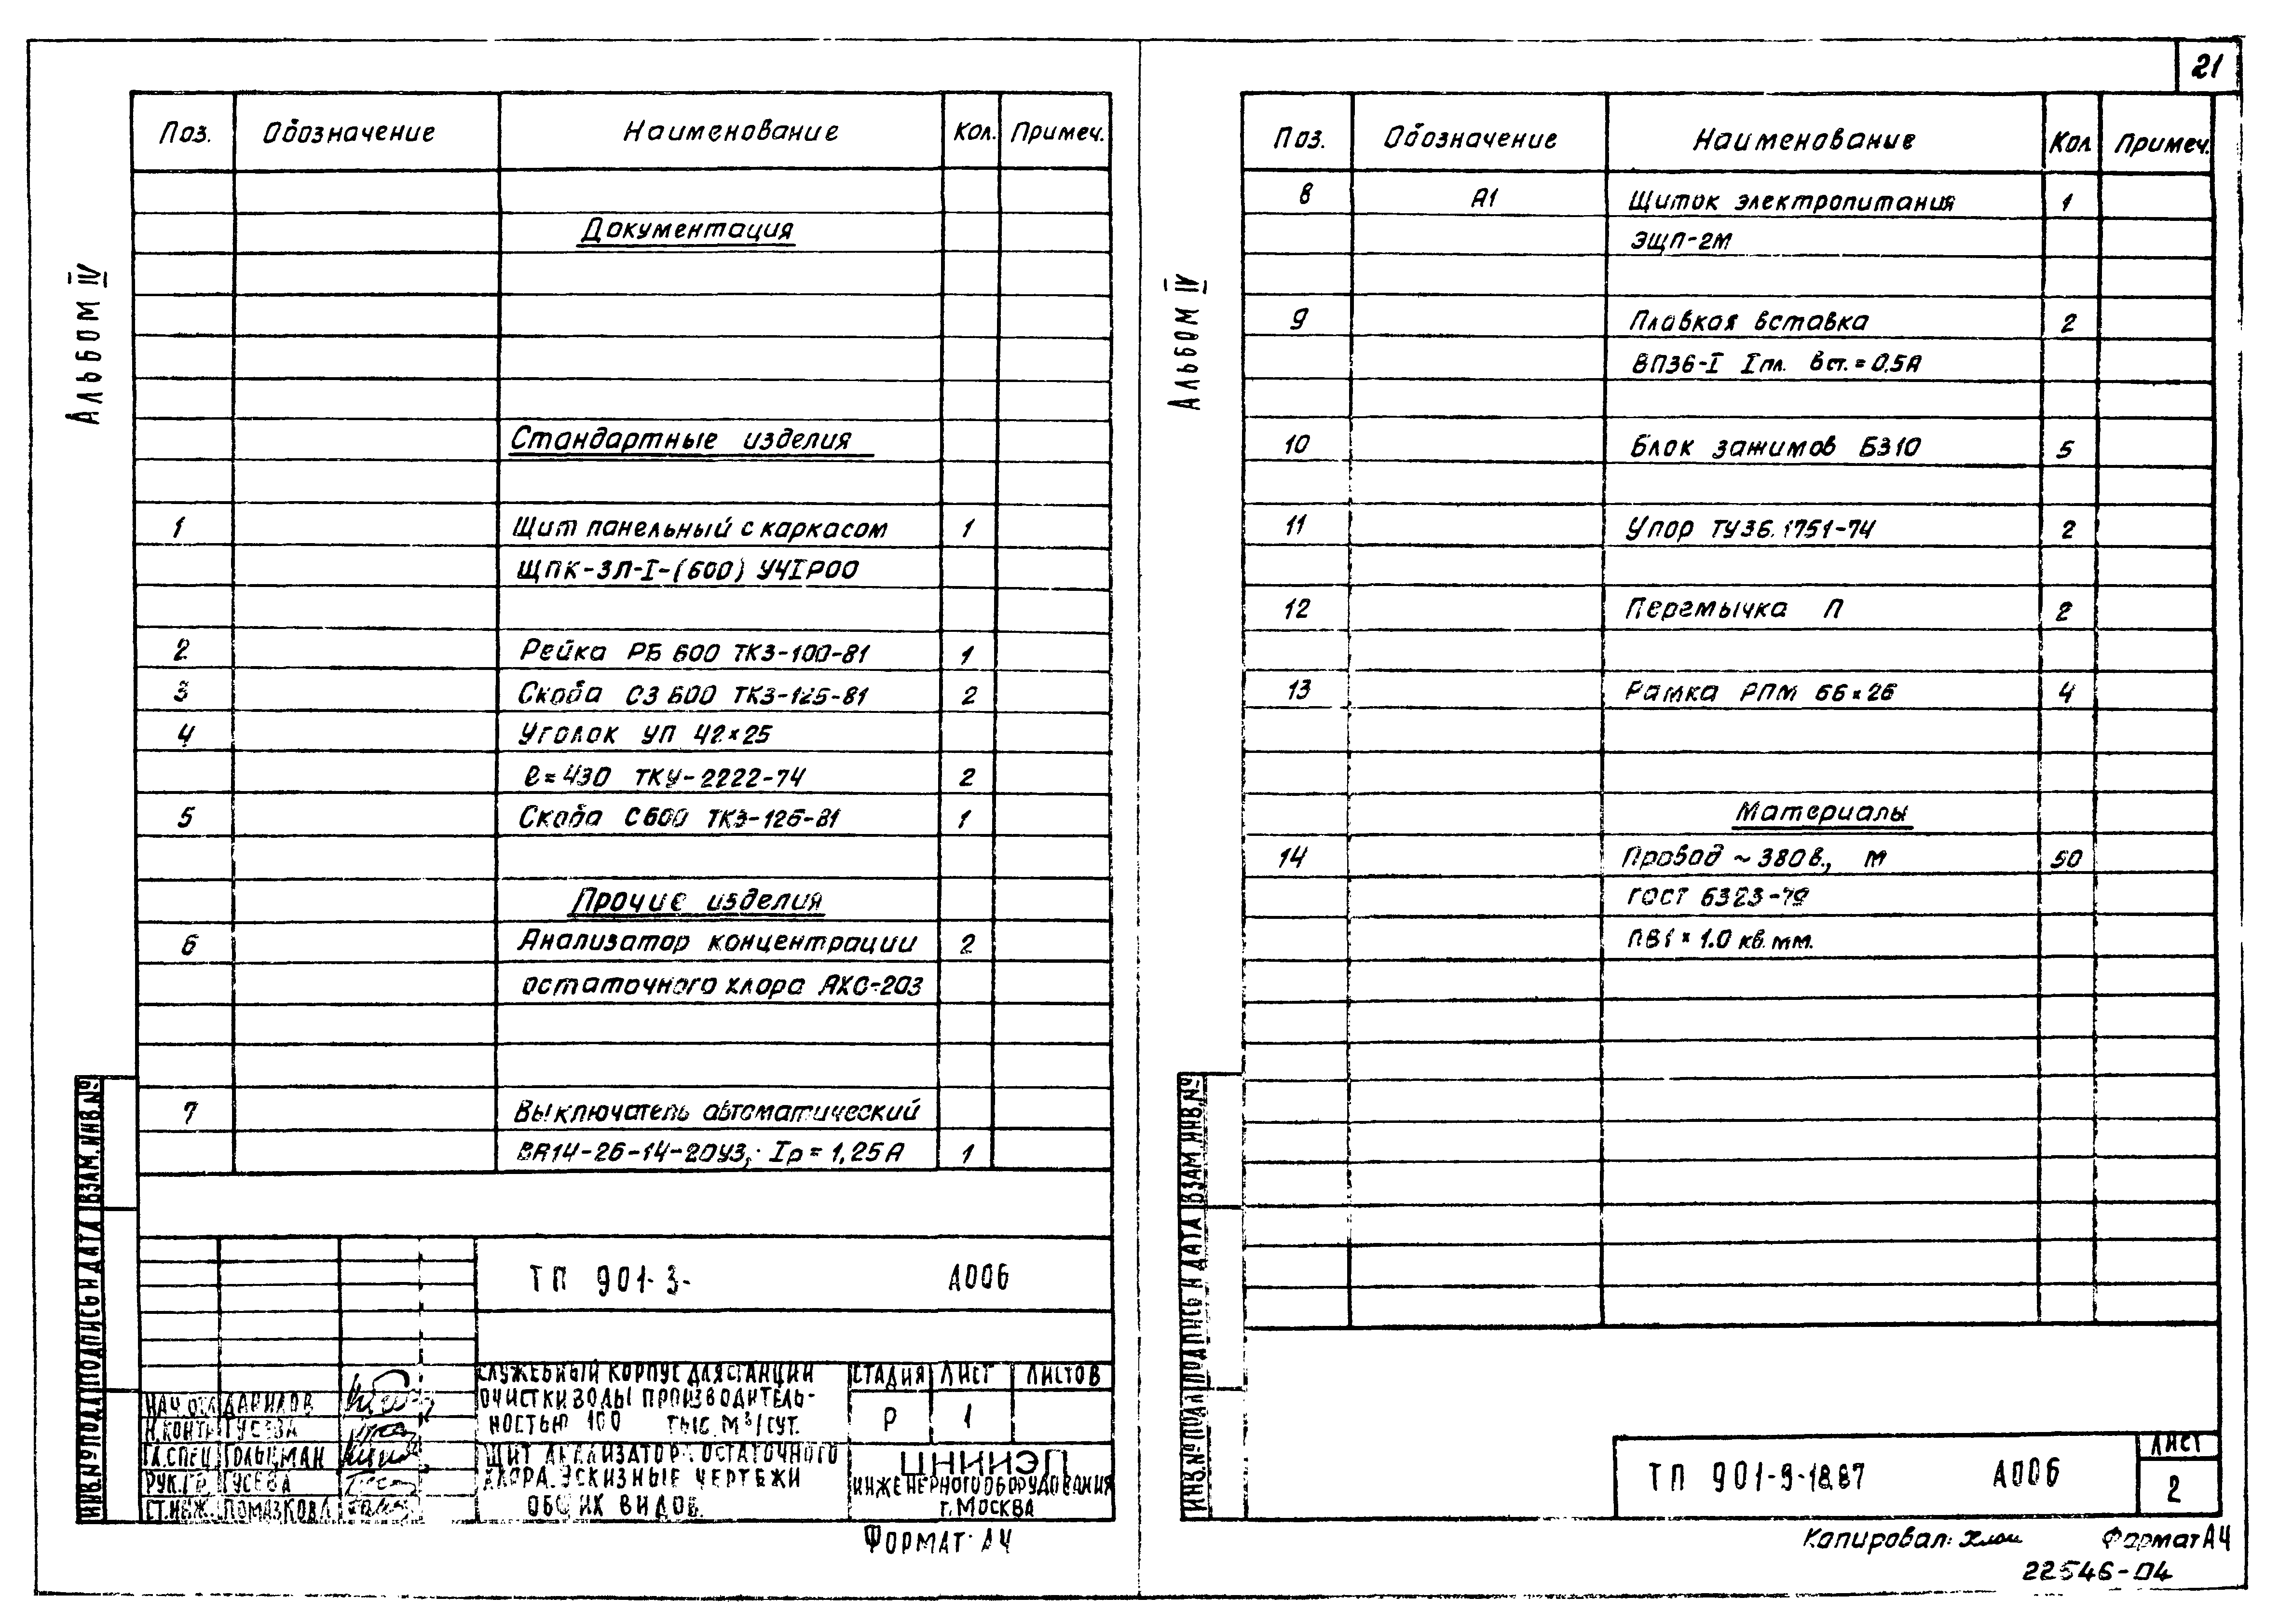 21
Альбом IV
Поз. Обозначение Наименование Кол. Примеч.
Документация
Стандартные изделия
1 Щит панельный с каркасом 1
ЩПК-ЗЛ-I-(600) УЧIР00
2 Рейка РБ 600 ТКЗ-100-81 1
3 Скоба СЗ 600 ТКЗ-125-81 2
4 Уголок УП 42×25
ℓ=430 ТКУ-2222-74 2
5 Скоба С600 ТКЗ-126-81 1
Прочие изделия
6 Анализатор концентрации 2
остаточного хлора АХС-203
7 Выключатель автоматический
ВА14-26-14-20У3, Iр = 1,25А 1
ТП 901-3- А006
СЛУЖЕБНЫЙ КОРПУС ДЛЯ СТАНЦИИ
ОЧИСТКИ ВОДЫ ПРОИЗВОДИТЕЛЬ-
НОСТЬЮ 100 ТЫС. М³/СУТ.
СТАДИЯ ЛИСТ ЛИСТОВ
Р 1
НАЧ.ОТД. ДАНИЛОВ
Н.КОНТР ГУСЕВА
ГЛ.СПЕЦ ГОЛЬЦМАН
РУК.ГР. ГУСЕВА
СТ.ИНЖ. ПОМАЗКОВА
ЩИТ АНАЛИЗАТОРА ОСТАТОЧНОГО
ХЛОРА. ЭСКИЗНЫЕ ЧЕРТЕЖИ
ОБЩИХ ВИДОВ.
ЦНИИЭП
ИНЖЕНЕРНОГО ОБОРУДОВАНИЯ
г. МОСКВА
ИНВ.№ ПОДЛ ПОДПИСЬ И ДАТА ВЗАМ.ИНВ.№
ФОРМАТ А4
Альбом IV
Поз. Обозначение Наименование Кол Примеч.
8 А1 Щиток электропитания 1
ЭЩП-2М
9 Плавкая вставка 2
ВП36-I Iпл. вст. = 0,5А
10 Блок зажимов БЗ10 5
11 Упор ТУ36.1751-74 2
12 Перемычка П 2
13 Рамка РПМ 66×26 4
Материалы
14 Провод ~ 380в., м 50
ГОСТ 6323-79
ПВ1 × 1.0 кв. мм.
ИНВ.№ ПОДЛ ПОДПИСЬ И ДАТА ВЗАМ.ИНВ.№
ТП 901-9-18.87 А006
ЛИСТ
2
Копировал: Формат А4
22546-04